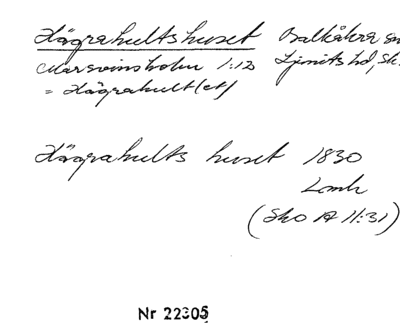 Hägrahultshuset Balkåkra sn
Marsvinsholm 1:12 Ljunits hd, Sk.
= Hägrahult(et)
Hägrahults huset 1830
Lomh
(Sko A II:31)
Nr 22305